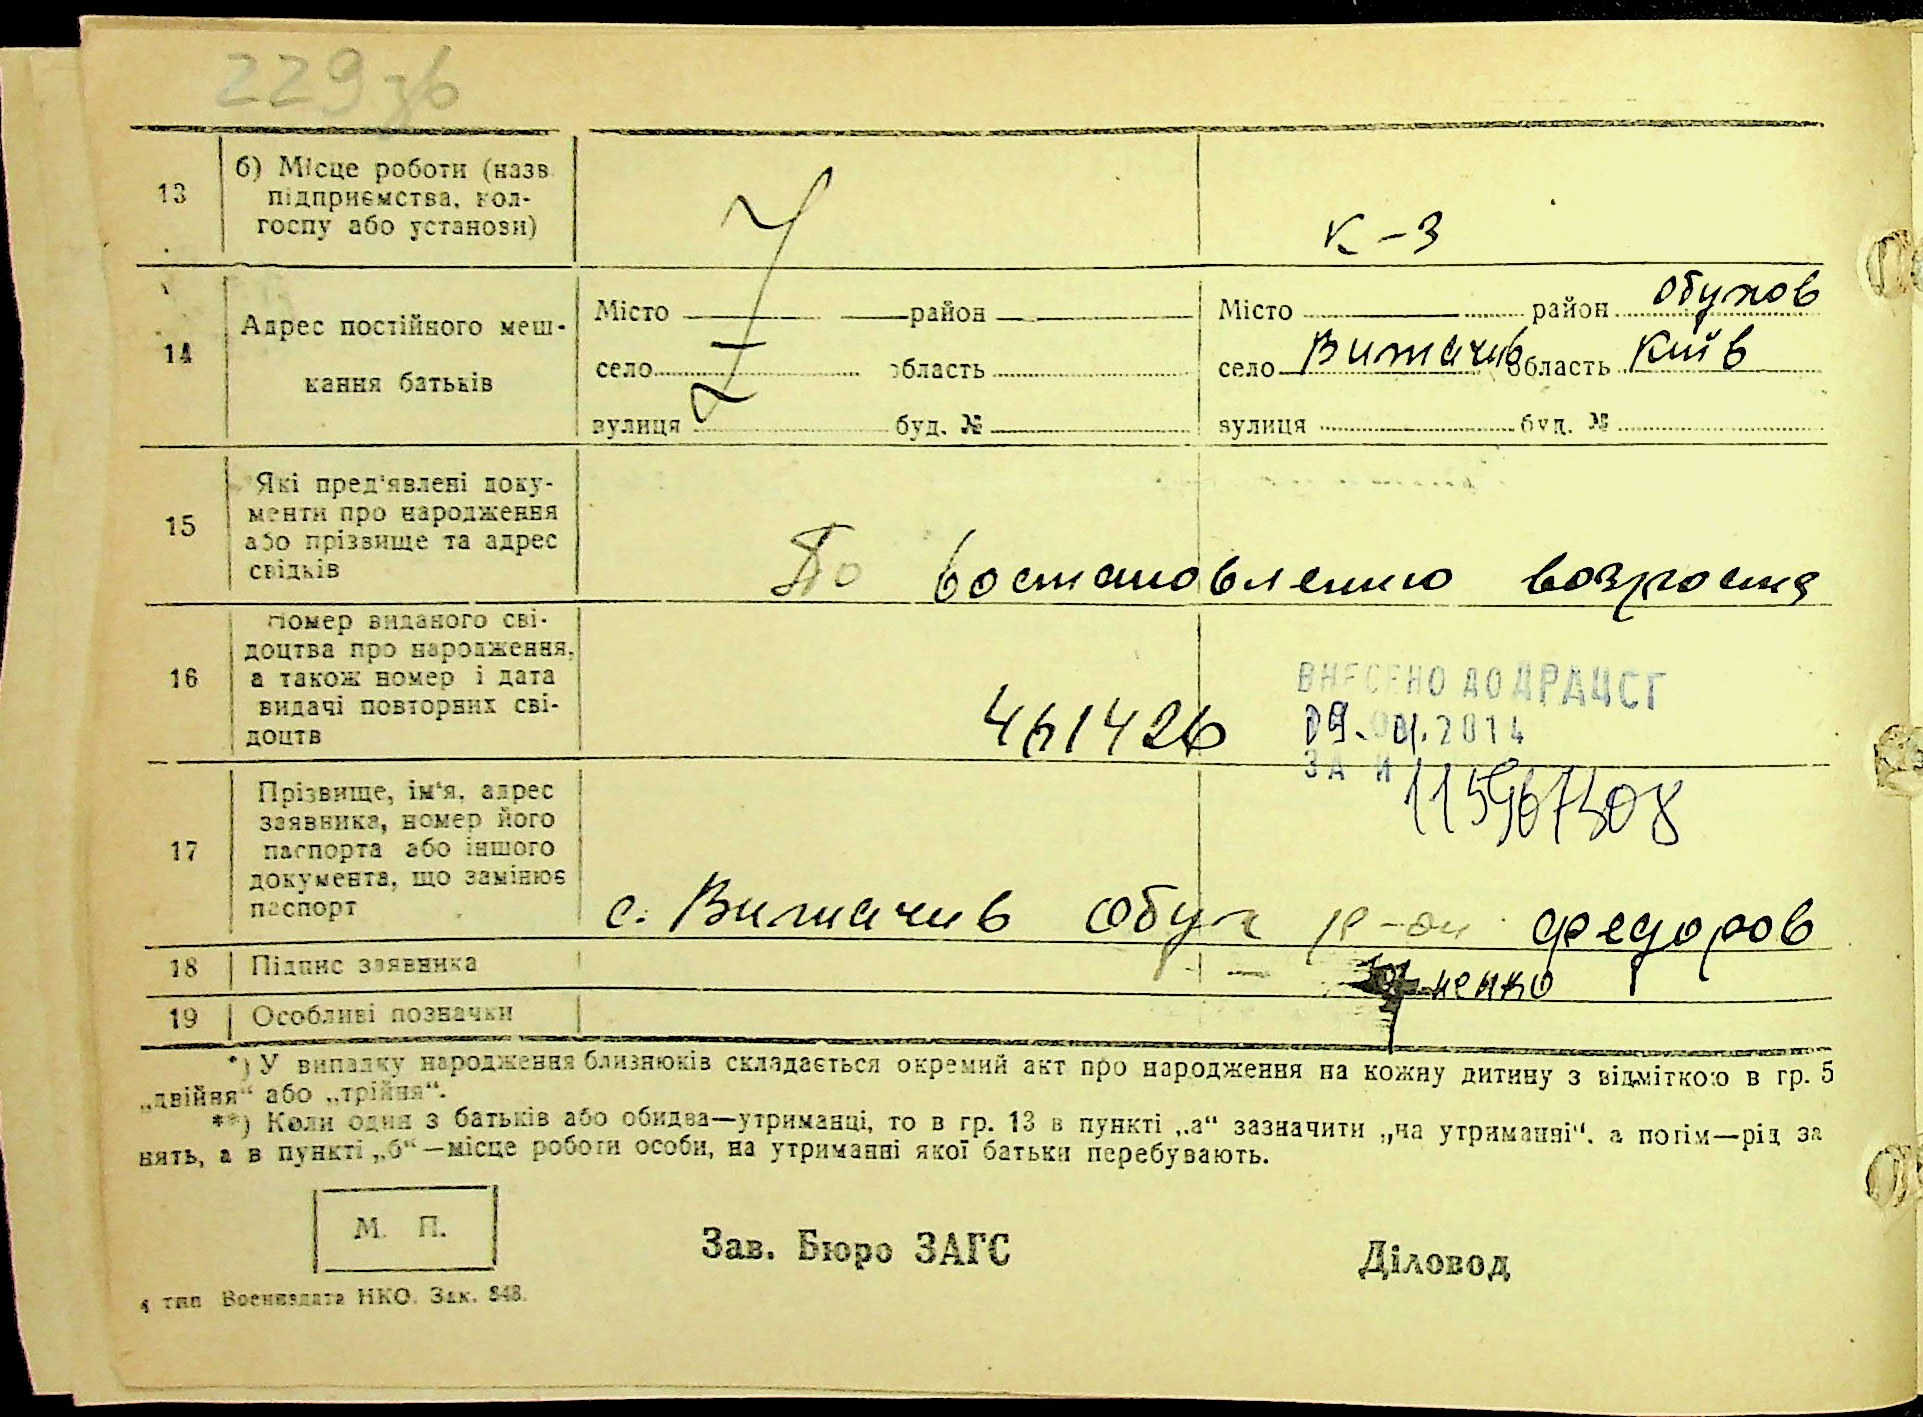 229 зв
13
б) Місце роботи (назв
підприємства, кол-
госпу або установи)
К-з
14
Адрес постійного меш-
кання батьків
Місто район
село область
вулиця буд. №
Місто район Обухов
село Витачив область Київ
вулиця буд. №
15
Які пред'явлені доку-
менти про народження
або прізвище та адрес
свідків
По востановлению возроста
16
Номер виданого сві-
доцтва про народження,
а також номер і дата
видачі повторних сві-
доцтв
461426
ВНЕСЕНО ДО ДРАЦСГ
2014
ЗА №
17
Прізвище, ім'я, адрес
заявника, номер його
паспорта або іншого
документа, що замінює
паспорт
с. Витачив Обух р-он Федоров
ненко
18
Підпис заявника
19
Особливі позначки
*) У випадку народження близнюків складається окремий акт про народження на кожну дитину з відміткою в гр. 5
„двійня“ або „трійня“.
**) Коли один з батьків або обидва—утриманці, то в гр. 13 в пункті „а“ зазначити „на утриманні“, а потім—рід за
нять, а в пункті „б“—місце роботи особи, на утриманні якої батьки перебувають.
М. П.
Зав. Бюро ЗАГС
Діловод
тип Воениздата НКО. Зак. 848.